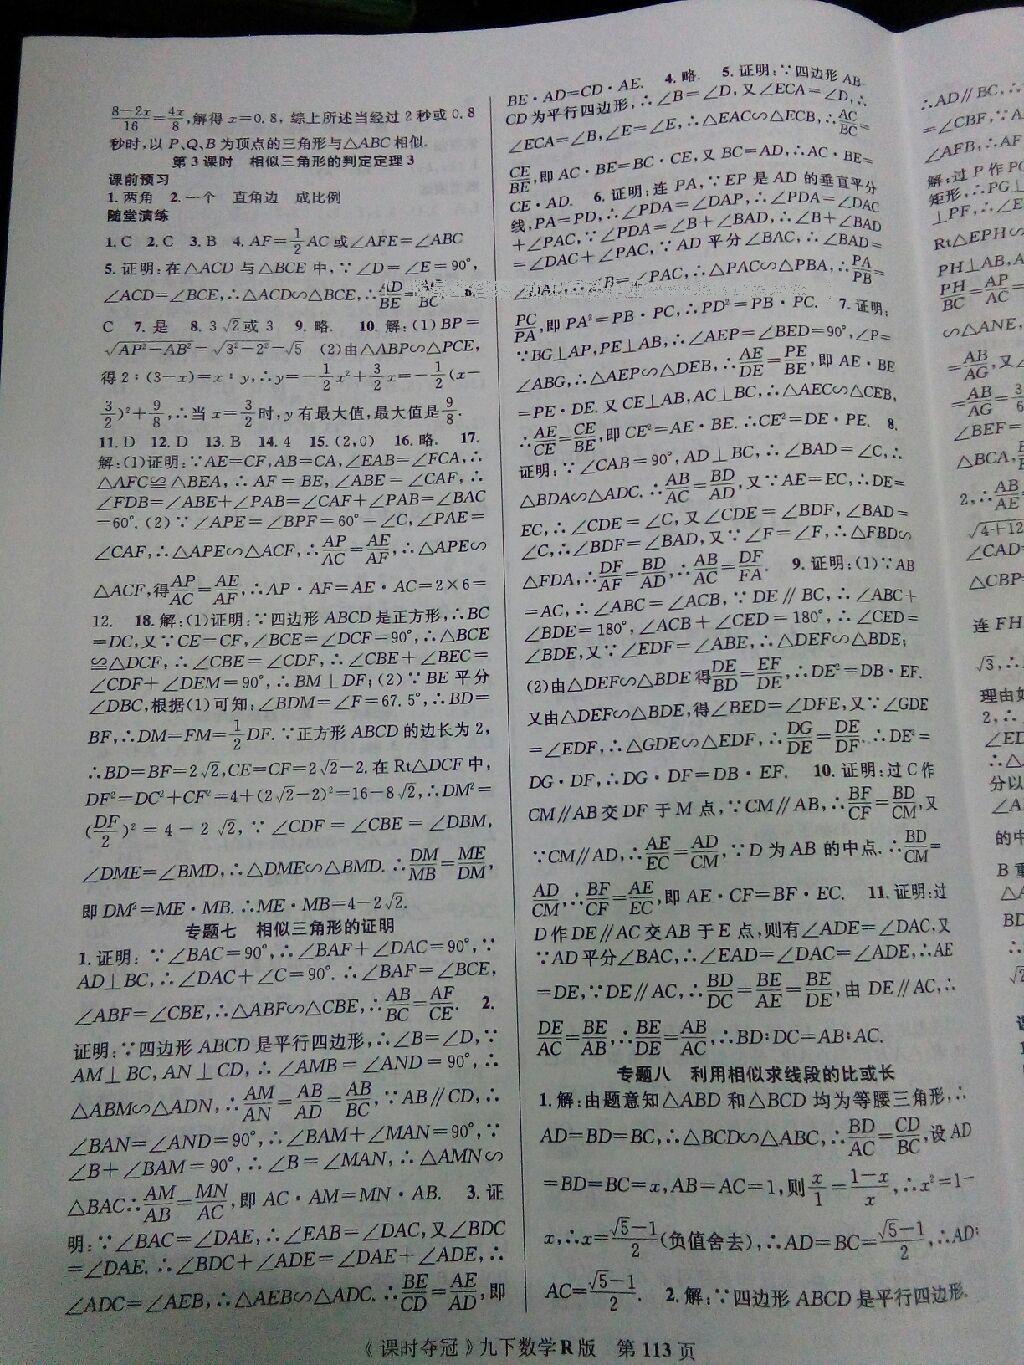 8-2x/16=4x/8,解得 x=0.8, 综上所述当经过 2 秒或 0.8
秒时,以 P、Q、B 为顶点的三角形与△ABC 相似.
第 3 课时 相似三角形的判定定理 3
课前预习
1. 两角 2. 一个 直角边 成比例
随堂演练
1. C 2. C 3. B 4. AF=1/2AC 或∠AFE=∠ABC
5. 证明:在△ACD 与△BCE 中,∵∠D=∠E=90°,
∠ACD=∠BCE,∴△ACD∽△BCE,∴AD/BE=AC/BC. 6.
C 7. 是 8. 3√2或 3 9. 略. 10. 解:(1)BP=
√AP²-AB²=√3²-2²=√5 (2)由△ABP∽△PCE,
得 2:(3-x)=x:y,∴y=-1/2x²+3/2x=-1/2(x-
3/2)²+9/8,∴当 x=3/2时,y 有最大值,最大值是9/8.
11. D 12. D 13. B 14. 4 15. (2,0) 16. 略. 17.
解:(1)证明:∵AE=CF,AB=CA,∠EAB=∠FCA,∴
△AFC≌△BEA,∴AF=BE,∠ABE=∠CAF,∴
∠FDB=∠ABE+∠PAB=∠CAF+∠PAB=∠BAC
=60°. (2)∵∠APE=∠BPF=60°=∠C,∠PAE=
∠CAF,∴△APE∽△ACF,∴AP/AC=AE/AF,∴△APE∽
△ACF,得AP/AC=AE/AF,∴AP·AF=AE·AC=2×6=
12. 18. 解:(1)证明:∵四边形 ABCD 是正方形,∴BC
=DC,又∵CE=CF,∠BCE=∠DCF=90°,∴△BCE
≌△DCF,∴∠CBE=∠CDF,∴∠CBE+∠BEC=
∠CDF+∠DEM=90°,∴BM⊥DF;(2)∵BE 平分
∠DBC,根据(1)可知:∠BDM=∠F=67.5°,∴BD=
BF,∴DM=FM=1/2DF.∵正方形 ABCD 的边长为 2,
∴BD=BF=2√2,CE=CF=2√2-2.在 Rt△DCF 中,
DF²=DC²+CF²=4+(2√2-2)²=16-8√2,∴DM²=
(DF/2)²=4-2√2,∵∠CDF=∠CBE=∠DBM,
∠DME=∠BMD,∴△DME∽△BMD.∴DM/MB=ME/DM,
即 DM²=ME·MB.∴ME·MB=4-2√2.
专题七 相似三角形的证明
1. 证明:∵∠BAC=90°,∴∠BAF+∠DAC=90°,∵
AD⊥BC,∴∠DAC+∠C=90°.∴∠BAF=∠BCE,
∠ABF=∠CBE,∴△ABF∽△CBE,∴AB/BC=AF/CE. 2.
证明:∵四边形 ABCD 是平行四边形,∴∠B=∠D,∵
AM⊥BC,AN⊥CD,∴∠AMB=∠AND=90°,∴
△ABM∽△ADN,∴AM/AN=AB/AD=AB/BC,∵AB∥CD,∴
∠BAN=∠AND=90°,∴∠BAM+∠MAN=90°,∵
∠B+∠BAM=90°,∴∠B=∠MAN,∴△AMN∽
△BAC∴AM/AB=MN/AC,即 AC·AM=MN·AB. 3. 证
明:∵∠BAC=∠DAE,∴∠EAB=∠DAC,又∠BDC
=∠DAE.∴∠BDC+∠ADE=∠DAE+∠ADE,∴
∠ADC=∠AEB,∴△AEB∽△ADC.∴BE/CD=AE/AD,即
BE·AD=CD·AE. 4. 略. 5. 证明:∵四边形 AB-
CD 为平行四边形,∴∠B=∠D,又∠ECA=∠D,∴
∠ECA=∠B,∠E=∠E,∴△EAC∽△ECB,∴AC/BC=
CE/BE,即 AC·BE=BC·CE,又 BC=AD,∴AC·BE=
CE·AD. 6. 证明:连 PA,∵EP 是 AD 的垂直平分
线,PA=PD,∴∠PDA=∠DAP,∴∠PDA=∠DAC
+∠PAC,∵∠PDA=∠B+∠BAD,∴∠B+∠BAD
=∠DAC+∠PAC,∵AD 平分∠BAC,∴∠BAD=
∠DAC.∴∠B=∠PAC,∴△PAC∽△PBA,∴PA/PB=
PC/PA,即 PA²=PB·PC,∴PD²=PB·PC. 7. 证明:
∵BG⊥AP,PE⊥AB,∴∠AEP=∠BED=90°,∠P=
∠ABG,∴△AEP∽△DEB,∴AE/DE=PE/BE,即 AE·BE
=PE·DE.又 CE⊥AB,AC⊥BC,∴△AEC∽△CEB,
∴AE/CE=CE/BE,即 CE²=AE·BE.∴CE²=DE·PE. 8.
证明:∵∠CAB=90°,AD⊥BC,∴∠BAD=∠C,∴
△BDA∽△ADC.∴AB/AC=BD/AD,又∵AE=EC,∴DE=
EC,∴∠CDE=∠C,又∠CDE=∠BDF,∠BAD=
∠C,∴∠BDF=∠BAD,又∵∠F=∠F,∴△FBD∽
△FDA,∴DF/AF=BD/AD,∴AB/AC=DF/FA. 9. 证明:(1)∵AB
=AC,∴∠ABC=∠ACB,∵DE∥BC,∴∠ABC+
∠BDE=180°,∠ACB+∠CED=180°,∴∠CED=
∠BDE,又∵∠EDF=∠ABE,∴△DEF∽△BDE;
(2)由△DEF∽△BDE 得DE/BD=EF/DE,∴DE²=DB·EF.
又由△DEF∽△BDE,得∠BED=∠DFE,又∵∠GDE
=∠EDF,∴△GDE∽△EDF,∴DG/DE=DE/DF.∴DE²=
DG·DF,∴DG·DF=DB·EF. 10. 证明:过 C 作
CM∥AB 交 DF 于 M 点,∵CM∥AB,∴BF/CF=BD/CM,又
∵CM∥AD,∴AE/EC=AD/CM,∵D 为 AB 的中点.∴BD/CM=
AD/CM,∴BF/CF=AE/EC,即 AE·CF=BF·EC. 11. 证明:过
D 作 DE∥AC 交 AB 于 E 点,则有∠ADE=∠DAC,又
∵AD 平分∠BAC,∴∠EAD=∠DAC=∠ADE,∴AE
=DE,∵DE∥AC,∴BD/DC=BE/AE=BE/DE,由 DE∥AC,∴
DE/AC=BE/AB,∴BE/DE=AB/AC,∴BD:DC=AB:AC.
专题八 利用相似求线段的比或长
1. 解:由题意知△ABD 和△BCD 均为等腰三角形,∴
AD=BD=BC,∴△BCD∽△ABC,∴BD/AC=CD/BC,设 AD
=BD=BC=x,AB=AC=1,则x/1=1-x/x,∴x²=1-
x,∴x=√5-1/2(负值舍去),∴AD=BC=√5-1/2,∴AD:
AC=√5-1/2. 2. 解:∵四边形 ABCD 是平行四边形.
《课时夺冠》九下数学 R 版 第 113 页
∴AD∥BC,∴
=∠CBF,∴
∠AFB,∴
解:过 P 作 P
矩形,∴PG⊥
⊥PF,∴∠E
Rt△EPH∽
PH⊥AB,A
PH/BC=AP/AC=
∽△ANE,
=AB/AG,又
=AB/AG=
∠BEF=
△BCA,
2,∴AB/AE=
√4+12
∠CAD=
△CBP=
连 FH
√3,∴
理由如
2,∴
∠ED
∴△
分以
∠A
的中
B 重
△A
BD